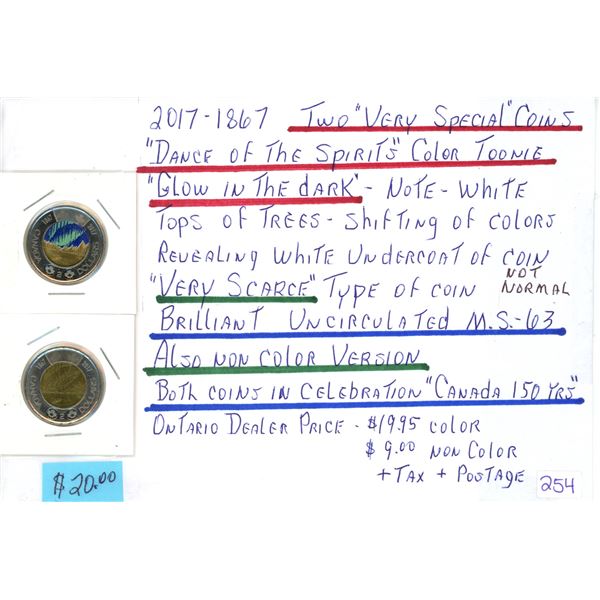 2017-1867 Two "Very Special" Coins
"Dance of The Spirits" Color Toonie
"Glow in The dark" - Note - White
Tops of Trees - Shifting of colors
Revealing White Undercoat of coin
"Very Scarce" Type of coin
NOT NORMAL
Brilliant Uncirculated M.S.-63
Also non color Version
Both coins in celebration "Canada 150 Yrs"
Ontario Dealer Price - $19.95 color
$9.00 non Color
+ Tax + Postage
254
1867 2017
CANADA 2 DOLLARS
1867 2017
CANADA 2 DOLLARS
$20.00